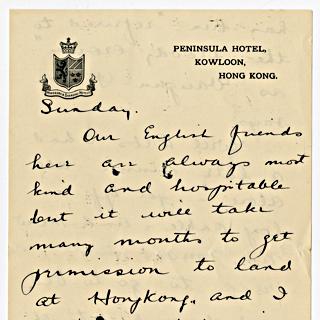 PENINSULA HOTEL,
KOWLOON,
HONG KONG.
Sunday.
Our English friends
here are always most
kind and hospitable
but it will take
many months to get
permission to land
at Hongkong, and I